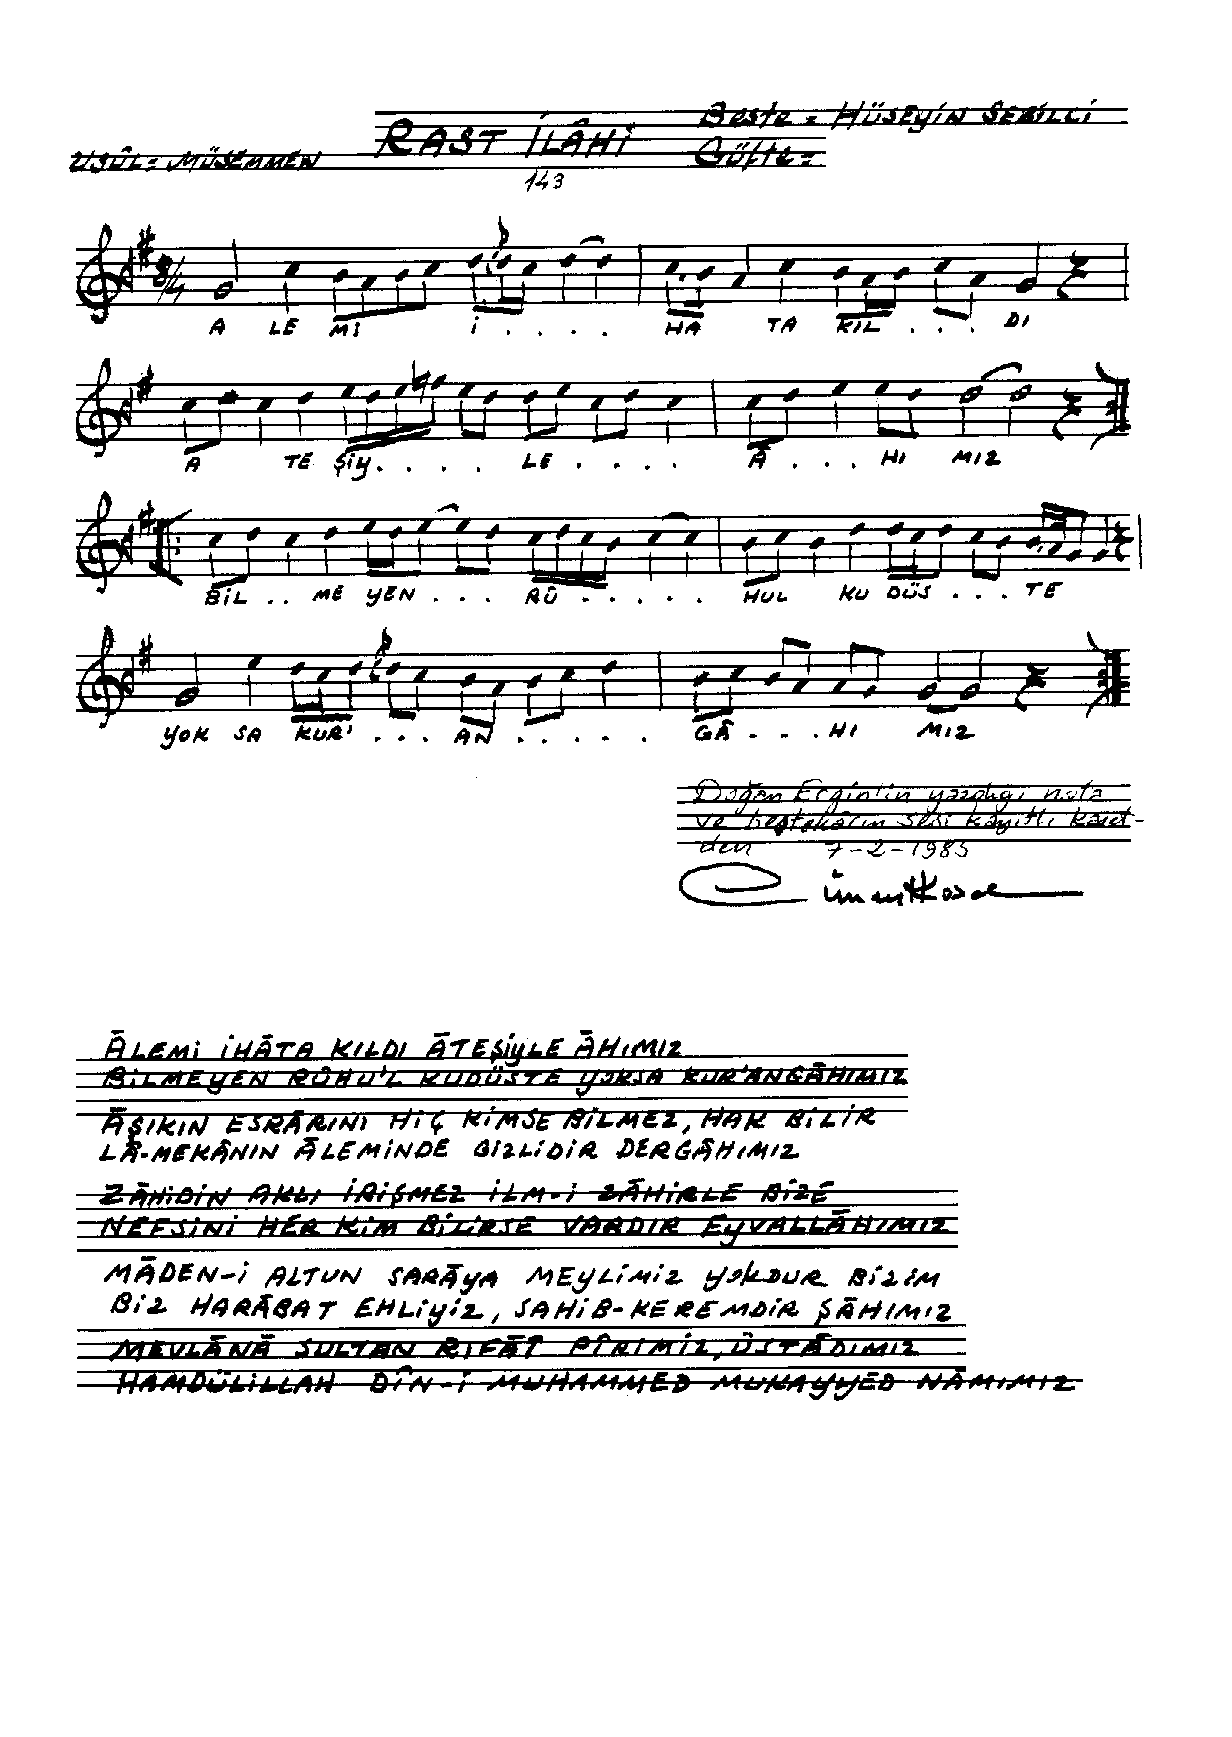 Beste = Hüseyin Sebilci
RAST İLÂHİ
USÛL = MÜSEMMEN
Güfte =
143
8/4
A LE Mİ İ . . . . HA TA KIL . . . DI
A TE ŞİY . . . . LE . . . . Â . . . HI MIZ
BİL . . ME YEN . . . RÛ . . . . . HUL KU DÜS . . . TE
YOK SA KUR' . . . AN . . . . . GÂ . . . HI MIZ
Doğan Ergin'in yazdığı nota
ve bestekârın sesi kayıtlı kaset-
den 7-2-1985
ÂLEMİ İHÂTA KILDI ÂTEŞİYLE ÂHIMIZ
BİLMEYEN RÛHU'L KUDÜSTE YOKSA KUR'ANGÂHIMIZ
ÂŞIKIN ESRÂRINI HİÇ KİMSE BİLMEZ, HAK BİLİR
LÂ-MEKÂNIN ÂLEMİNDE GİZLİDİR DERGÂHIMIZ
ZÂHİDİN AKLI İRİŞMEZ İLM-İ ZÂHİRLE BİZE
NEFSİNİ HER KİM BİLİRSE VARDIR EYVALLÂHIMIZ
MÂDEN-İ ALTUN SARÂYA MEYLİMİZ YOKDUR BİZİM
BİZ HARÂBAT EHLİYİZ, SAHİB-KEREMDİR ŞÂHIMIZ
MEVLÂNÂ SULTAN RIFÂT PÎRİMİZ, ÜSTÂDIMIZ
HAMDÜLİLLAH DÎN-İ MUHAMMED MUKAYYED NÂMIMIZ